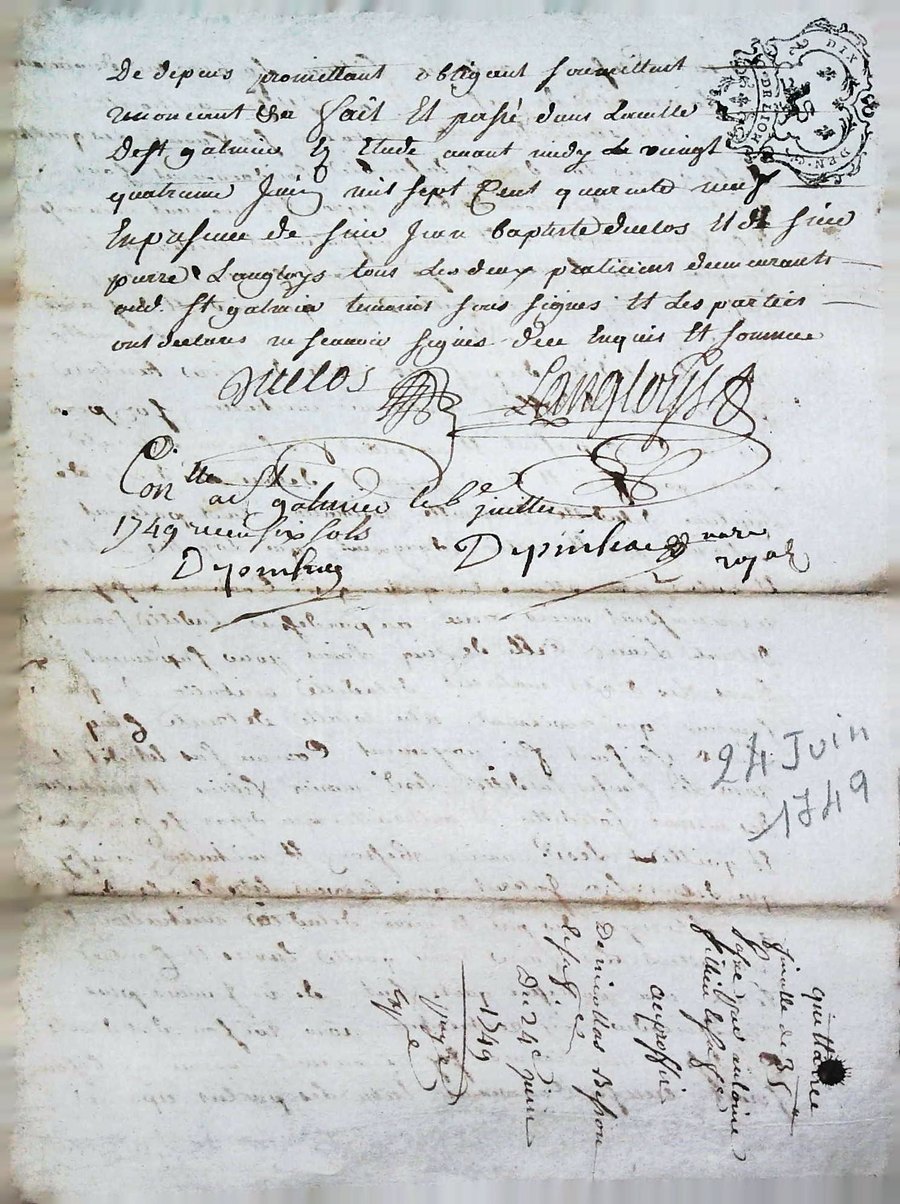 De depens promettant obligeant soumettant
renoncant &er fait Et passé dans Laville
De st galmier Et Etude avant midy Le vingt
quatrieme Juin mil sept Cent quarente neuf
En presence de sieur Jean baptiste duclos Et de sieur
pierre Langloys tous Les deux praticiens demeurants
aud. St galmier temoins sous signes Et Les parties
ont declarés ne scavoir signer de ce Enquis Et sommee
Duclos Langloys
Con.lle a St galmier le 6e juillet
1749 receu six sols
Depinhac Depinhac nore
royal
24 Juin
1749
quittance
antoine
au proffit
De nicollas Besson
Du 24e juin
1749
payé
DIX
DEN.
DE LION